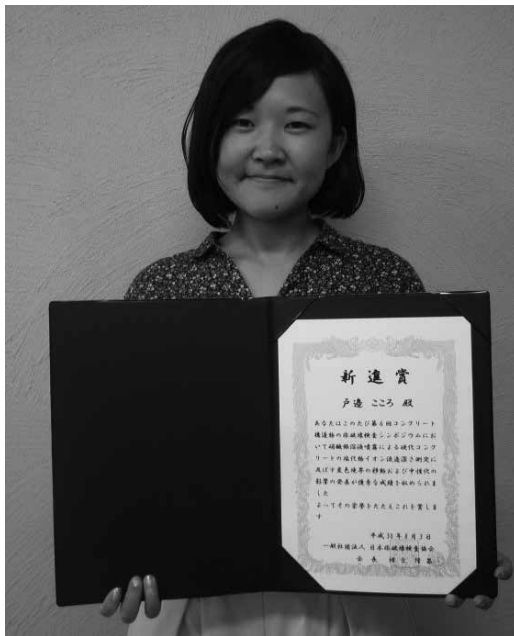 新進賞
戸邉 こころ 殿
あなたはこのたび第6回コンクリート
構造物の非破壊検査シンポジウムにお
いて硝酸銀溶液噴霧による硬化コンク
リートの塩化物イオン浸透深さ測定に
及ぼす変色境界の移動および中性化の
影響の発表が優秀な成績を収められま
した
よってその栄誉をたたえこれを賞しま
す
平成30年8月3日
一般社団法人 日本非破壊検査協会
会長